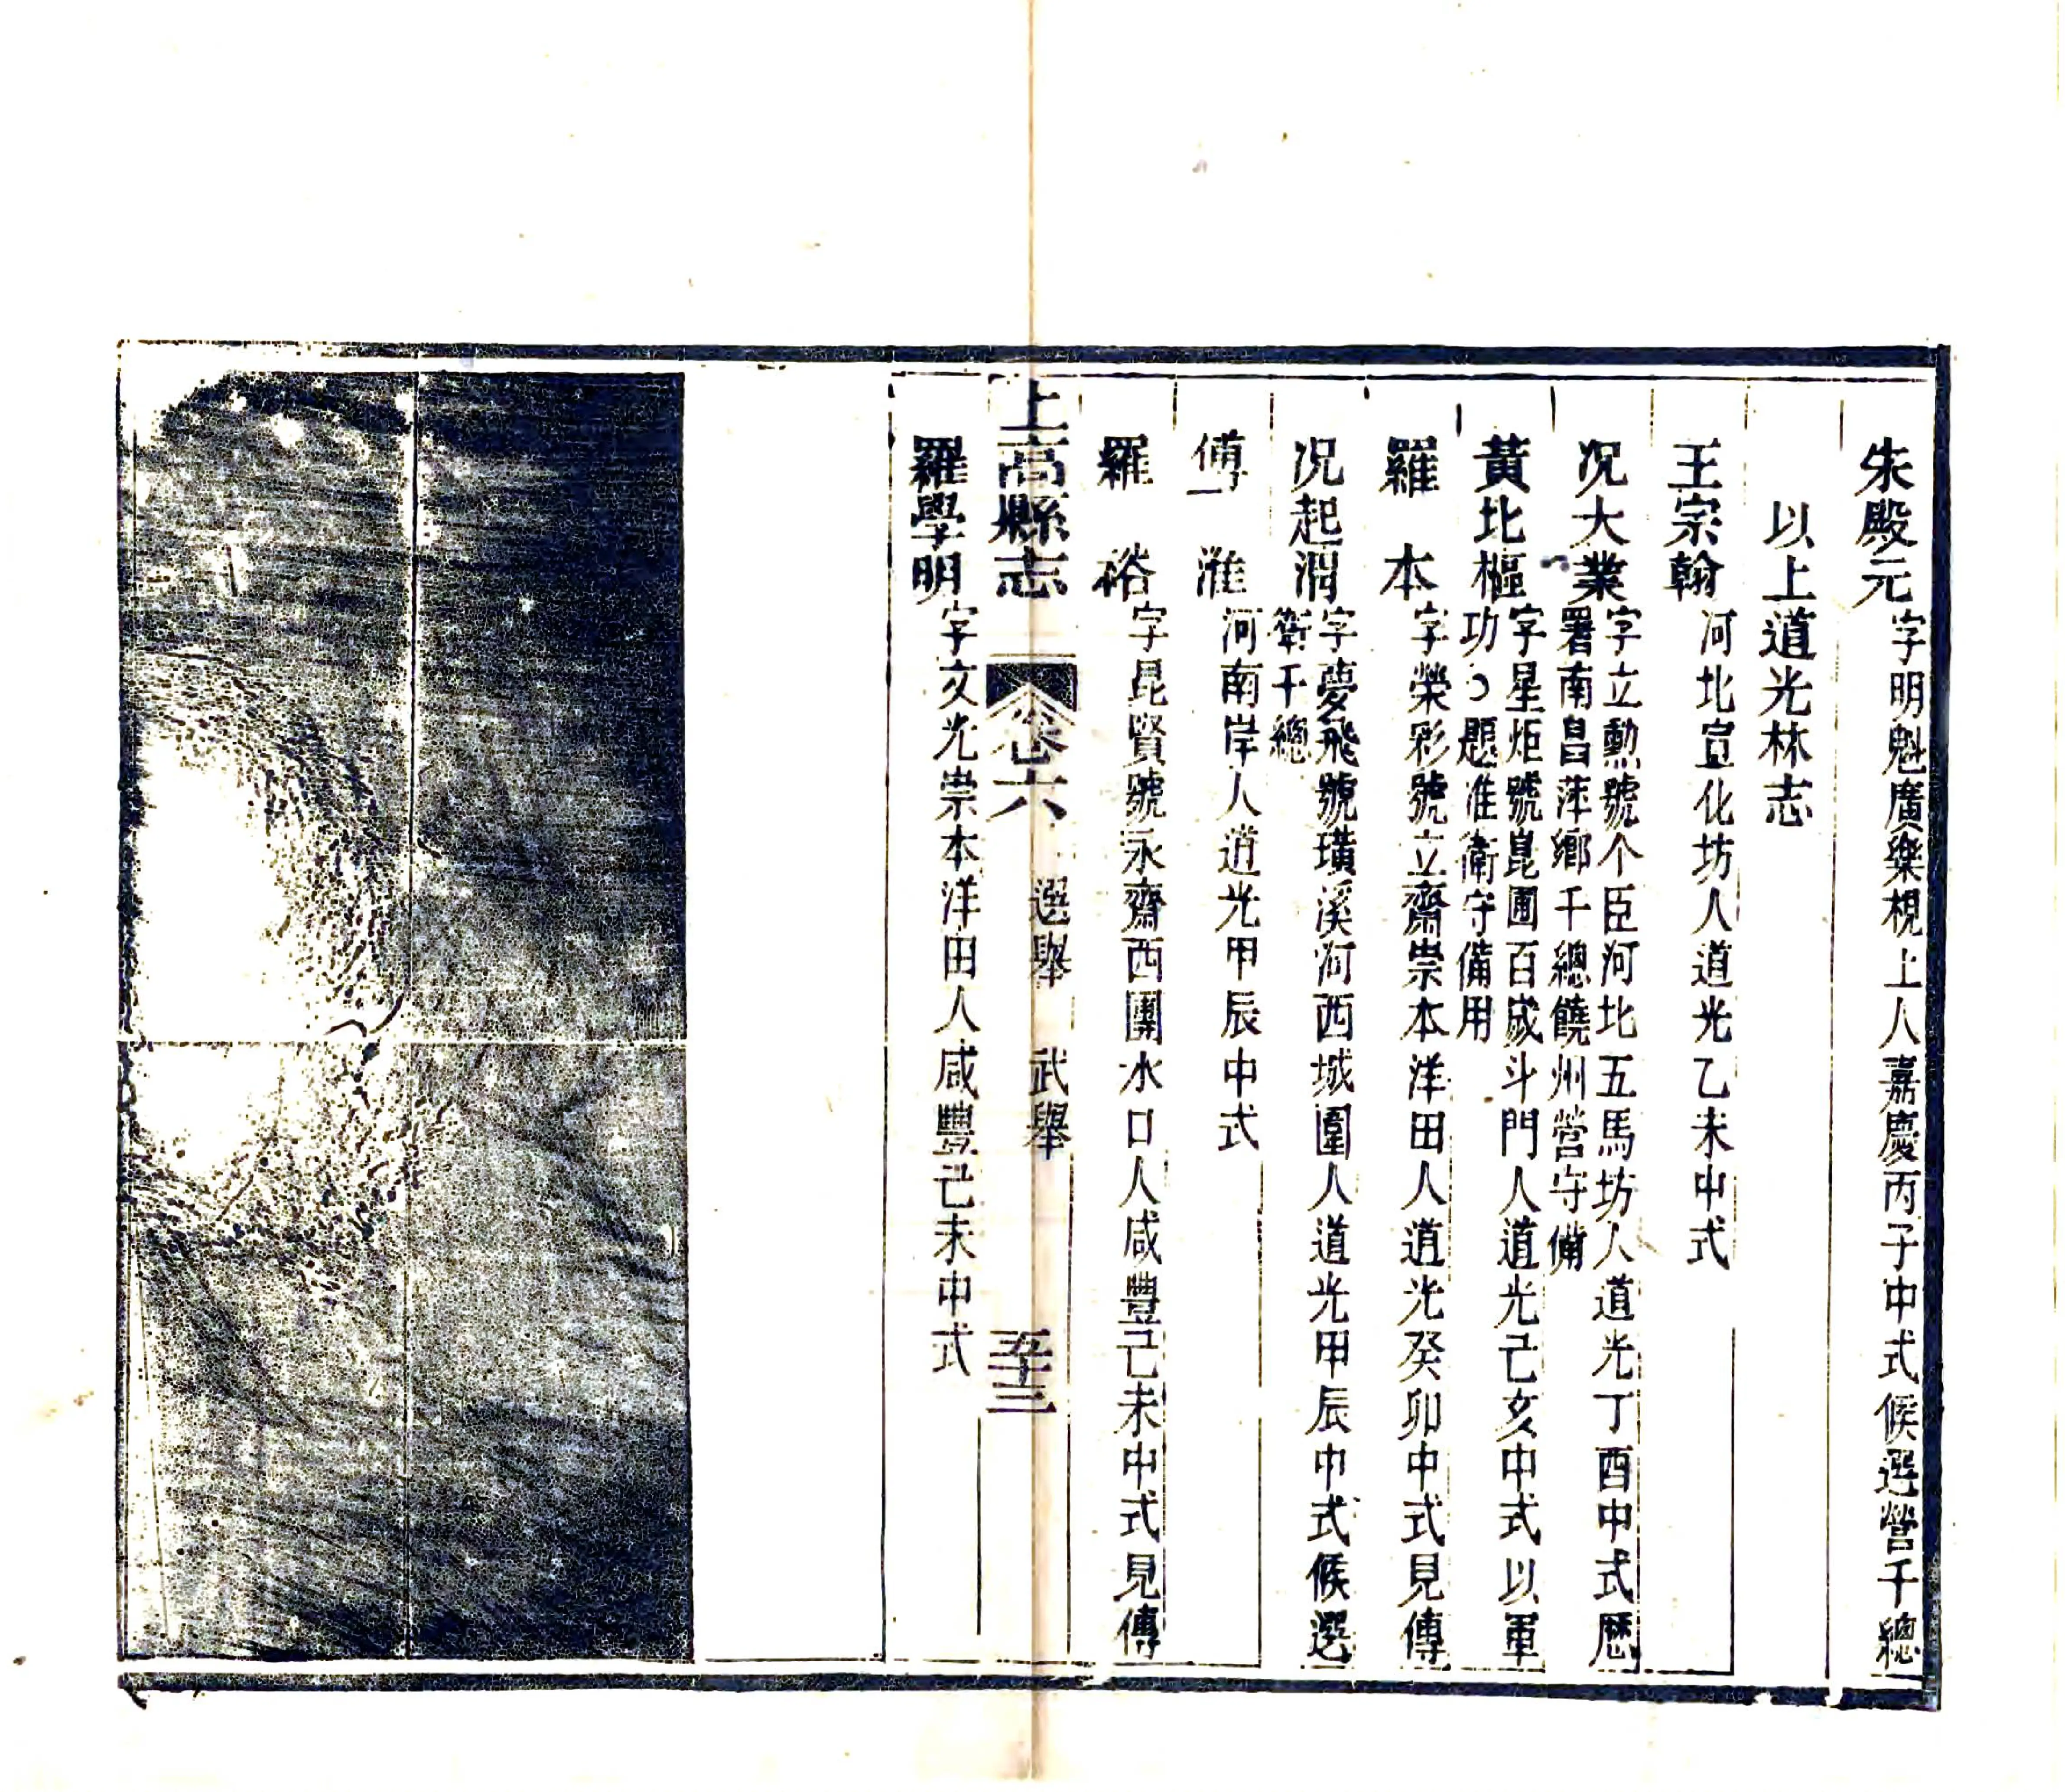 朱殿元字明魁廣樂梘上人嘉慶丙子中式候選營千總
以上道光林志
王宗翰河北宣化坊人道光乙未中式
况大業字立勳號个臣河北五馬坊人道光丁酉中式歷
署南昌萍鄉千總饒州營守備
黃北樞字星炬號崑圃百歲斗門人道光己亥中式以軍
功題准衛守備用
羅本字榮彩號立齋崇本洋田人道光癸卯中式見傳
况起渭字夢飛號璜溪河西城圍人道光甲辰中式候選
衛千總
傅淮河南岸人道光甲辰中式
羅裕字昆賢號永齋西團水口人咸豐己未中式見傳
上高縣志 卷六 選舉 武舉 五十三
羅學明字文光崇本洋田人咸豐己未中式